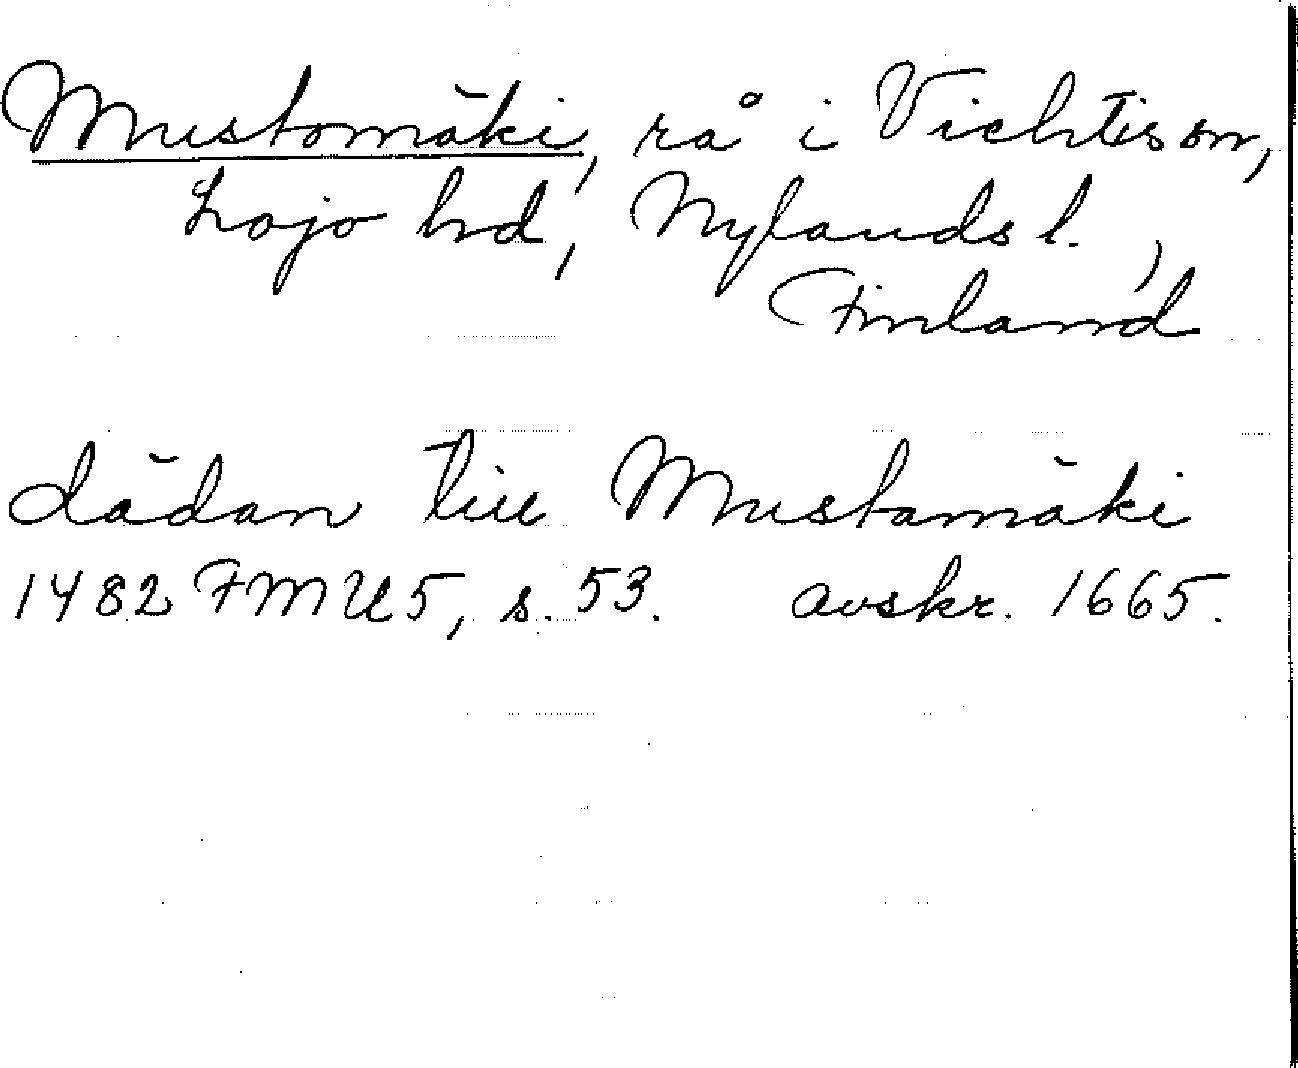 Mustomäki, rå i Vichtis sn,
Lojo hd, Nylands l.,
Finland
dädan till Mustamäki
1482 FMU 5, s. 53. avskr. 1665.